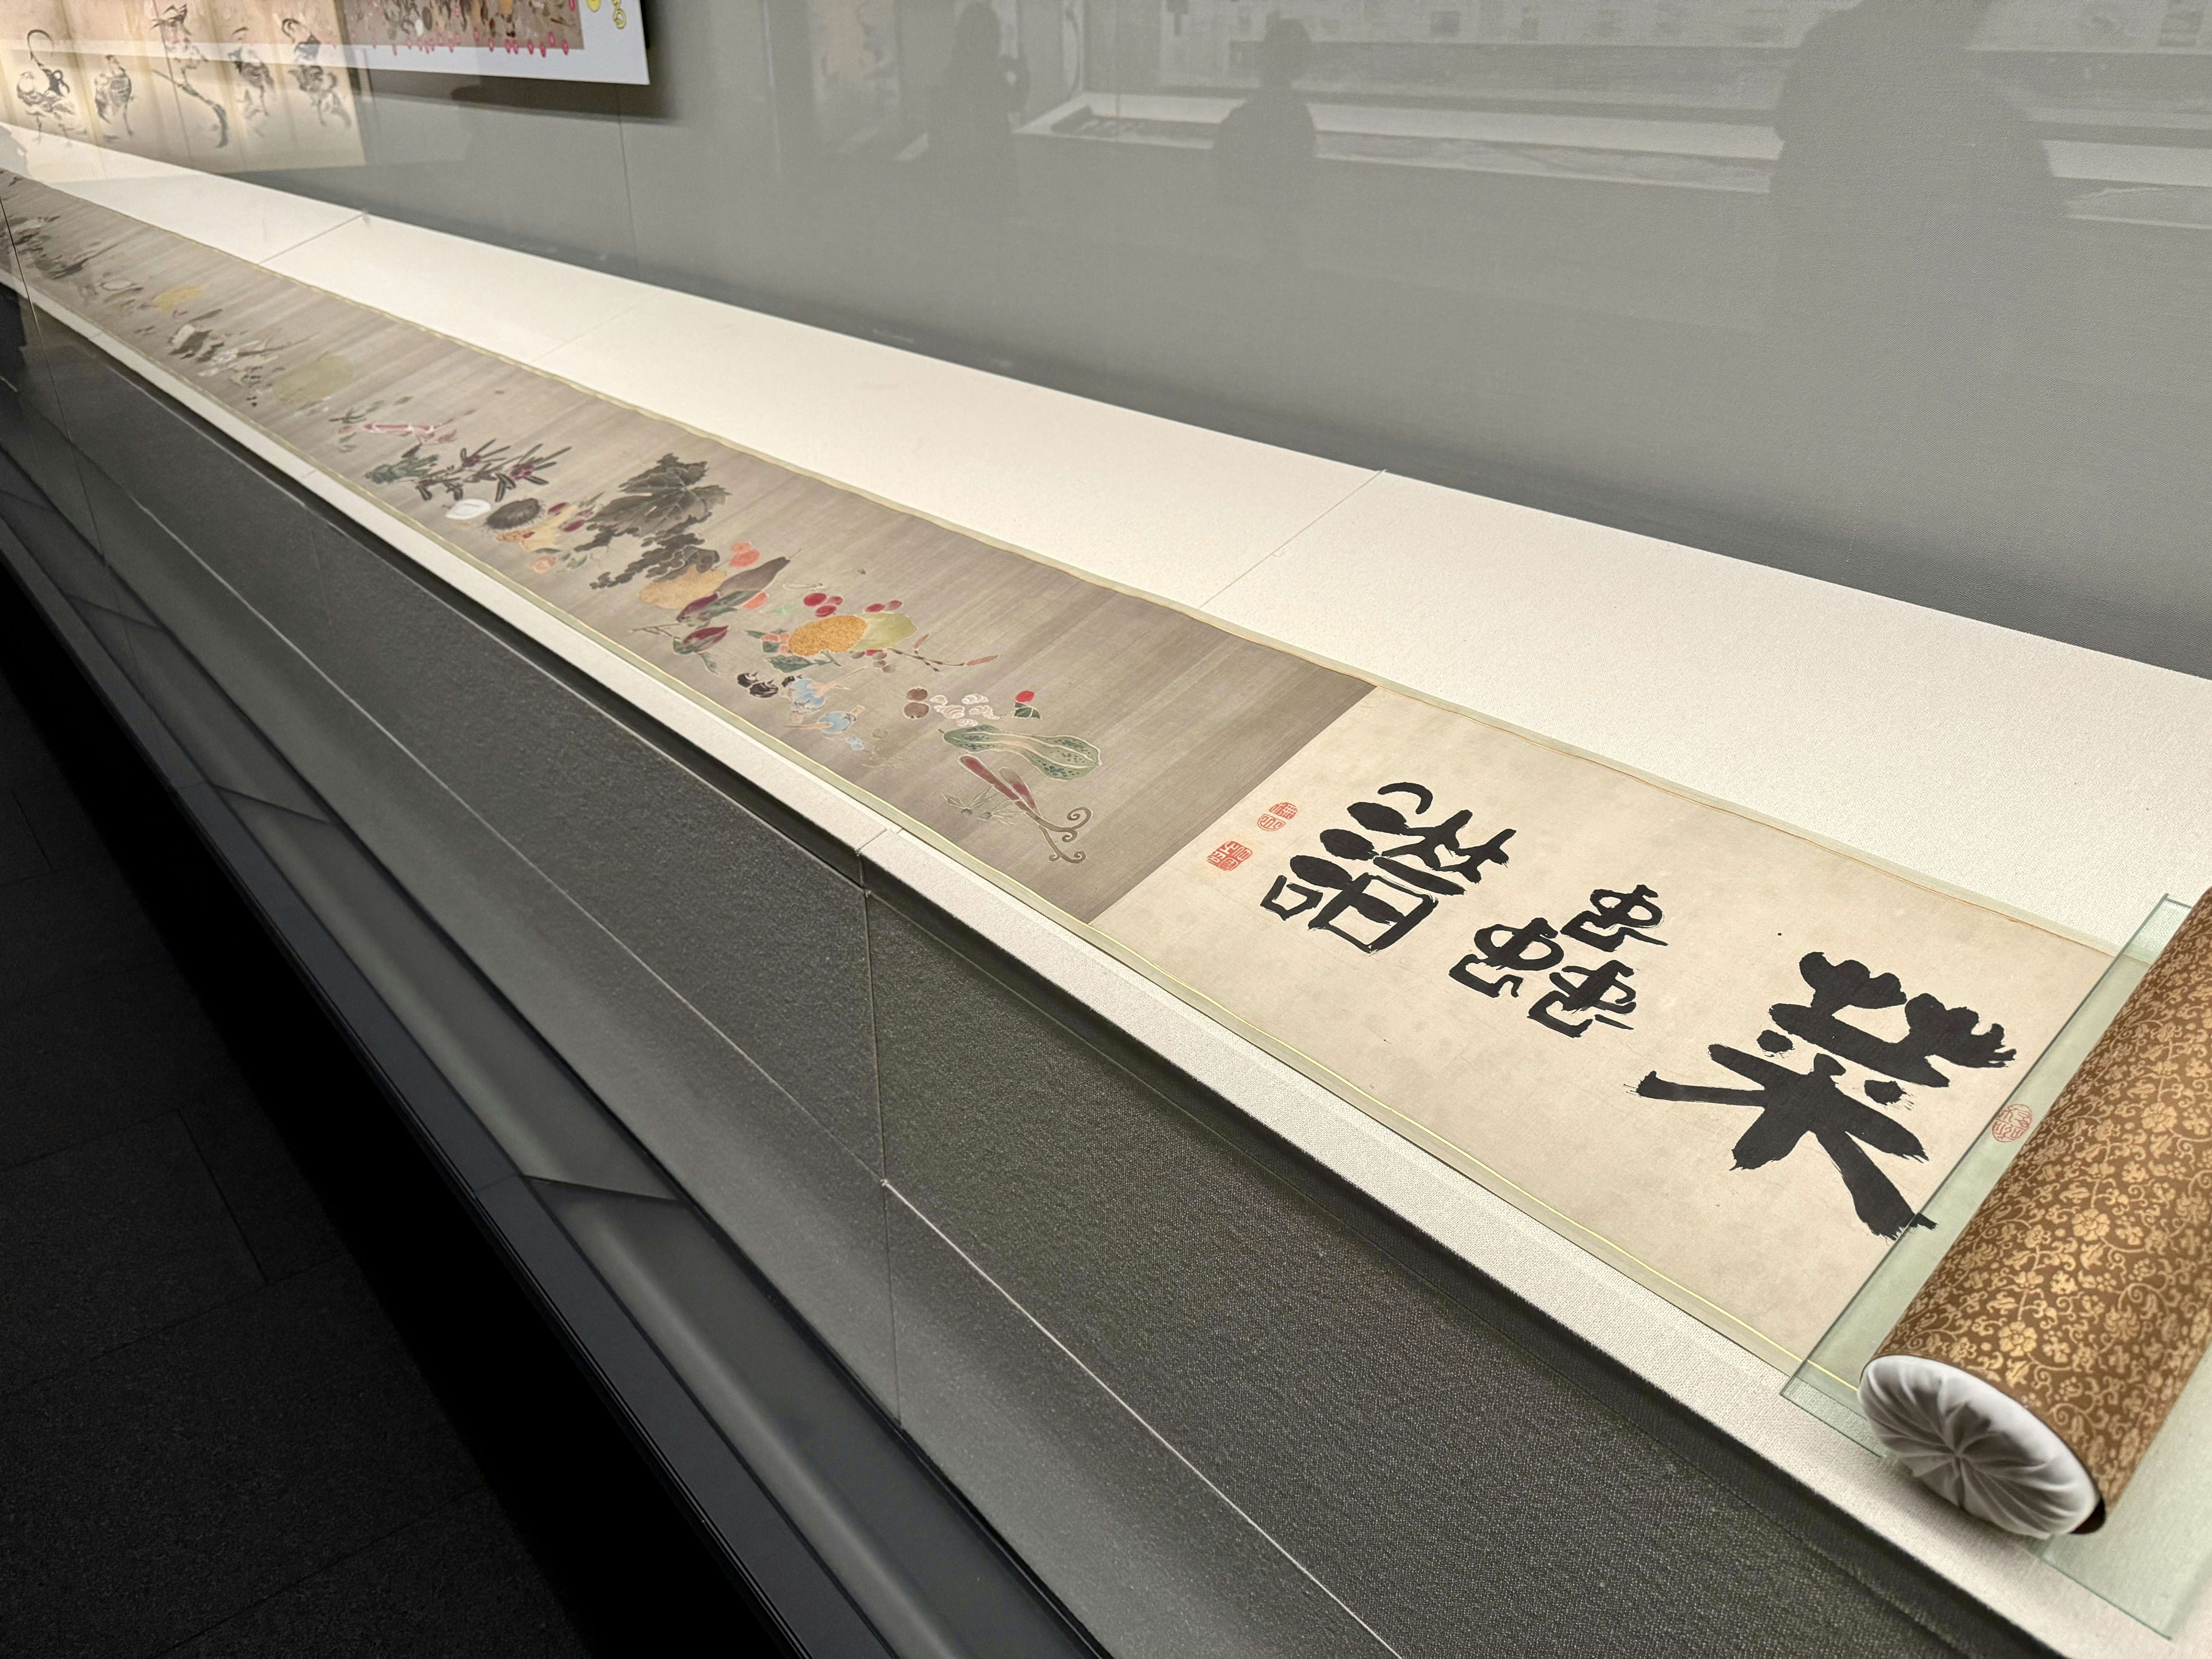 菜蟲譜